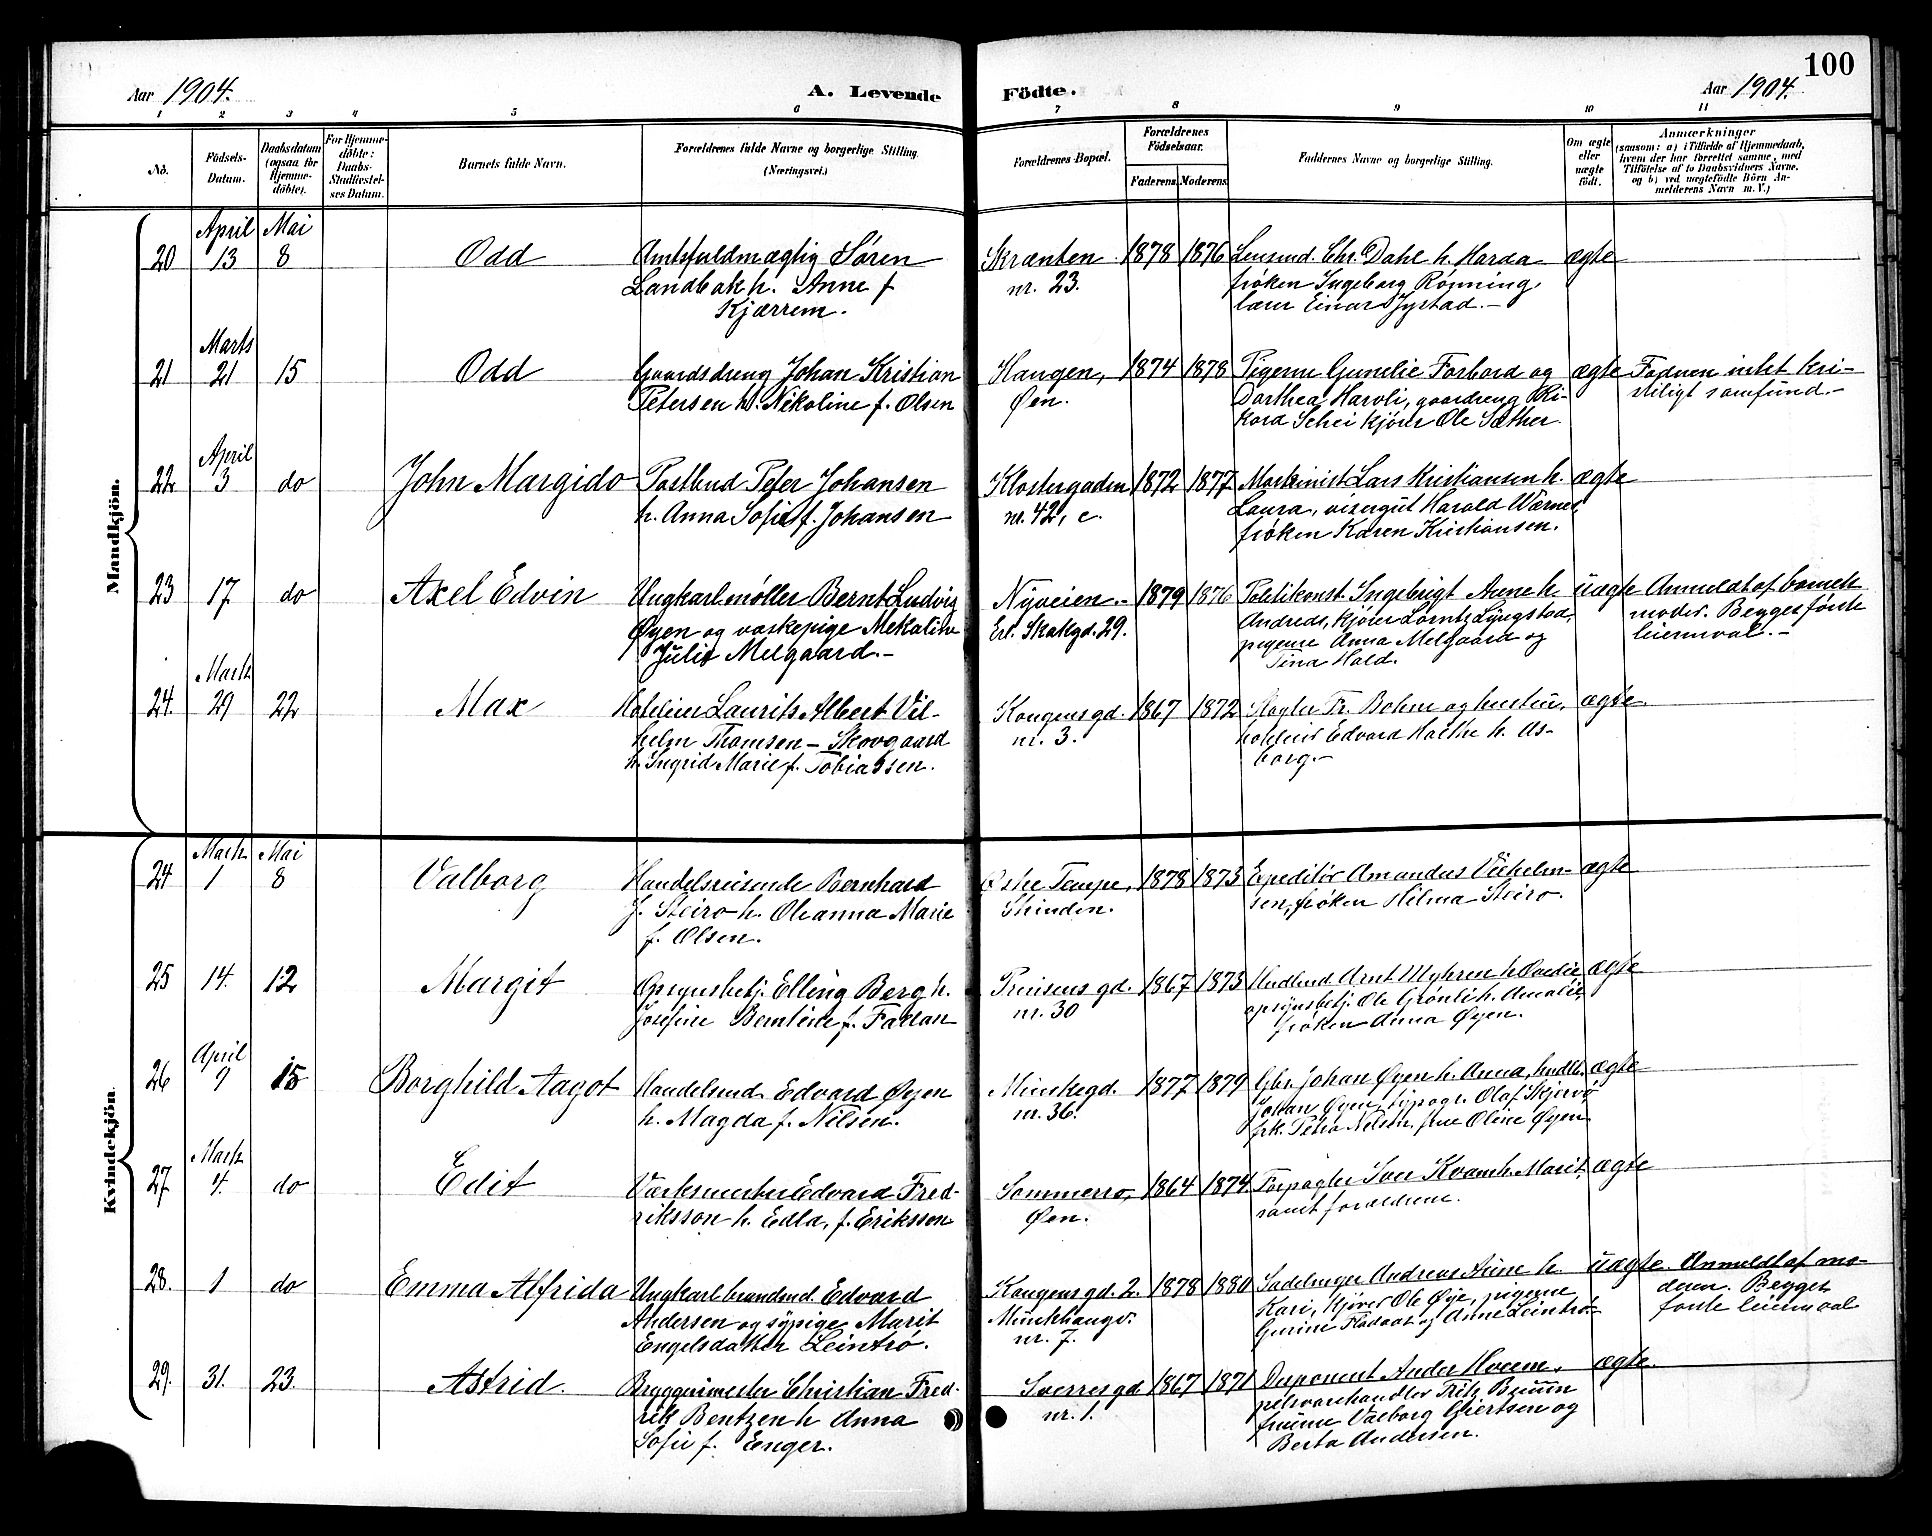 100
Aar 1904.
A. Levende
Födte.
Aar 1904.
1 2 3 4 5 6 7 8 9 10 11
No.
Födsels-
Datum.
Daabsdatum
(ogsaa for
Hjemme-
döbte).
For Hjemme-
döbte:
Daabs-
Stadfæstel-
ses Datum.
Barnets fulde Navn.
Forældrenes fulde Navne og borgerlige Stilling.
(Næringsvei.)
Forældrenes Bopæl.
Forældrenes
Födselsaar.
Faderens. Moderens.
Faddernes Navne og borgerlige Stilling.
Om ægte
eller
uægte
födt.
Anmærkninger
(saasom: a) i Tilfælde af Hjemmedaab,
hvem der har forrettet samme, med
Tilföielse af to Daabsvidners Navne.
og b) ved uægtefödte Börn An-
melderens Navn m. V.)
Mandkjön.
April Mai
20 13 8 Odd
Amtsfuldmægtig Søren
Landbak h. Anne f
Kjærrem.
Skrænten
nr. 23.
1878 1876
Lensmd. Chr. Dahl h. Harda
frøken Ingeborg Rønning,
lærer Einar Jystad.-
ægte
Marts
21 21 15 Odd
Gaardsdreng Johan Kristian
Petersen h. Nikoline f. Olsen
Haugen,
Øen.
1874 1878
Pigerne Gunelie Forbord og
Dorthea Harvli, gaardreng Ri-
kard Schei kjører Ole Sæther.
ægte
Faderen intet kri-
steligt samfund.-
April
22 3 do John Margido
Postbud Peter Johansen
h. Anna Sofie f. Johansen
Klostergaden
nr. 42, c.
1872 1877
Maskinist Lars Kristiansen h.
Laura, visergut Harald Wærnes
frøken Karen Kristiansen.
ægte
23 17 do Axel Edvin
Ungkarl møller Bernt Ludvig
Øyen og vaskepige Mekaline
Julie Melgaard.-
Nyveien.-
Erl. Skakgd. 29.
1879 1876
Politikonst. Ingebrigt Aune h.
Andrea, kjører Lorntz Lyngstad,
pigerne Anna Melgaard og
Tina Hald.
uægte
Anmeldt af barnets
moder. Begges første
leiermaal.-
Marts
24. 29 22 Max
Hoteleier Laurits Albert Vil-
helm Thomsen - Skovgaard
h. Ingrid Marie f. Tobiassen.
Kongensgd.
nr. 3.
1867 1872
Slagter Fr. Bohne og hustru,
hoteleier Edvard Holthe h. As-
borg.-
ægte
Kvindekjön.
Marts Mai
24 1 8 Valborg
Handelsreisende Bernhard
J. Steiro h. Oleanna Marie
f. Olsen.
Østre Tempe,
Strinden.
1878 1873
Expeditør Amandus Vilhelm-
sen, frøken Hilma Steiro.
ægte
25 14. 12 Margit
Opsynsbetj. Elling Berg h.
Josefine Berntine f. Fallan
Prinsensgd.
nr. 30
1867 1873
Arnt Myhren h.
opsynsbetj. Ole Grønli h. Amalie,
frøken Anna Øyen.
ægte
April
26 9 15 Borghild Aagot
Handelsmd. Edvard Øyen
h. Magda f. Nilsen.
Munkegd.
nr. 36.
1877 1879
Gbr. Johan Øyen h. Anna, hndlb.
Johan Øyen, typogr. Olaf Skjervø
frk. Petra Nilsen, frue Oline Øyen
ægte
Marts
27 4. do Edit
Værksmester Edvard Fred-
riksson h. Edla, f. Eriksson
Sommerro,
Øen.
1864 1874.
Forpagter Iver Kvam h. Marit,
samt forældrene.
ægte
28. 1 do Emma Alfrida
Ungkarl brandmd. Edvard
Andersen og sypige Marit
Engelsdatter Leintrø.
Kongensgd. 2.
Munkhaugv.
nr. 7.
1878 1880
Sadelmager Andreas Aune h.
Kari, kjører Ole Øye, pigerne
Gurine Flodaas og Anne Leintrø.
uægte.
Anmeldt af mo-
deren. Begges
første leiermaal
29. 31. 23. Astrid.
Bryggerimester Christian Fred-
rik Bentzen h. Anna
Sofie f. Enger.
Sverresgd
nr. 1.
1867 1871
Disponent Anders Hveem,
pelsvarehandler Fritz Bruun
fruerne Valborg Giertsen og
Berta Andersen.
ægte.